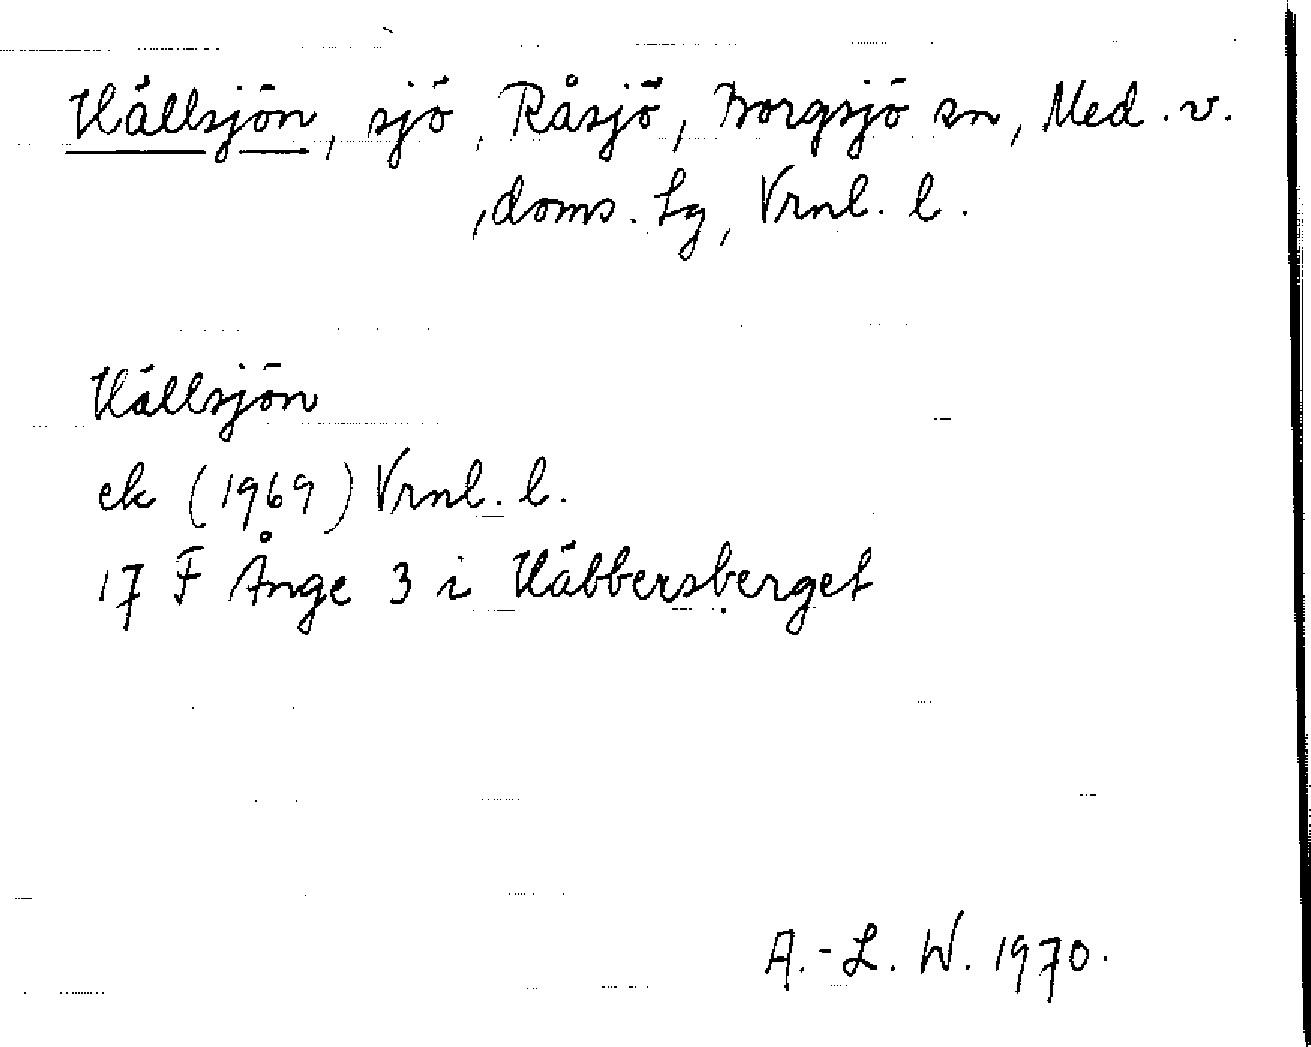 Hällsjön, sjö, Råsjö, Borgsjö sn, Med. v.
, doms. Lg, Vrnl. l.
Hällsjön
ek (1969) Vrnl. l.
17 F Ånge 3 i Häbbersberget
A.-L. W. 1970.